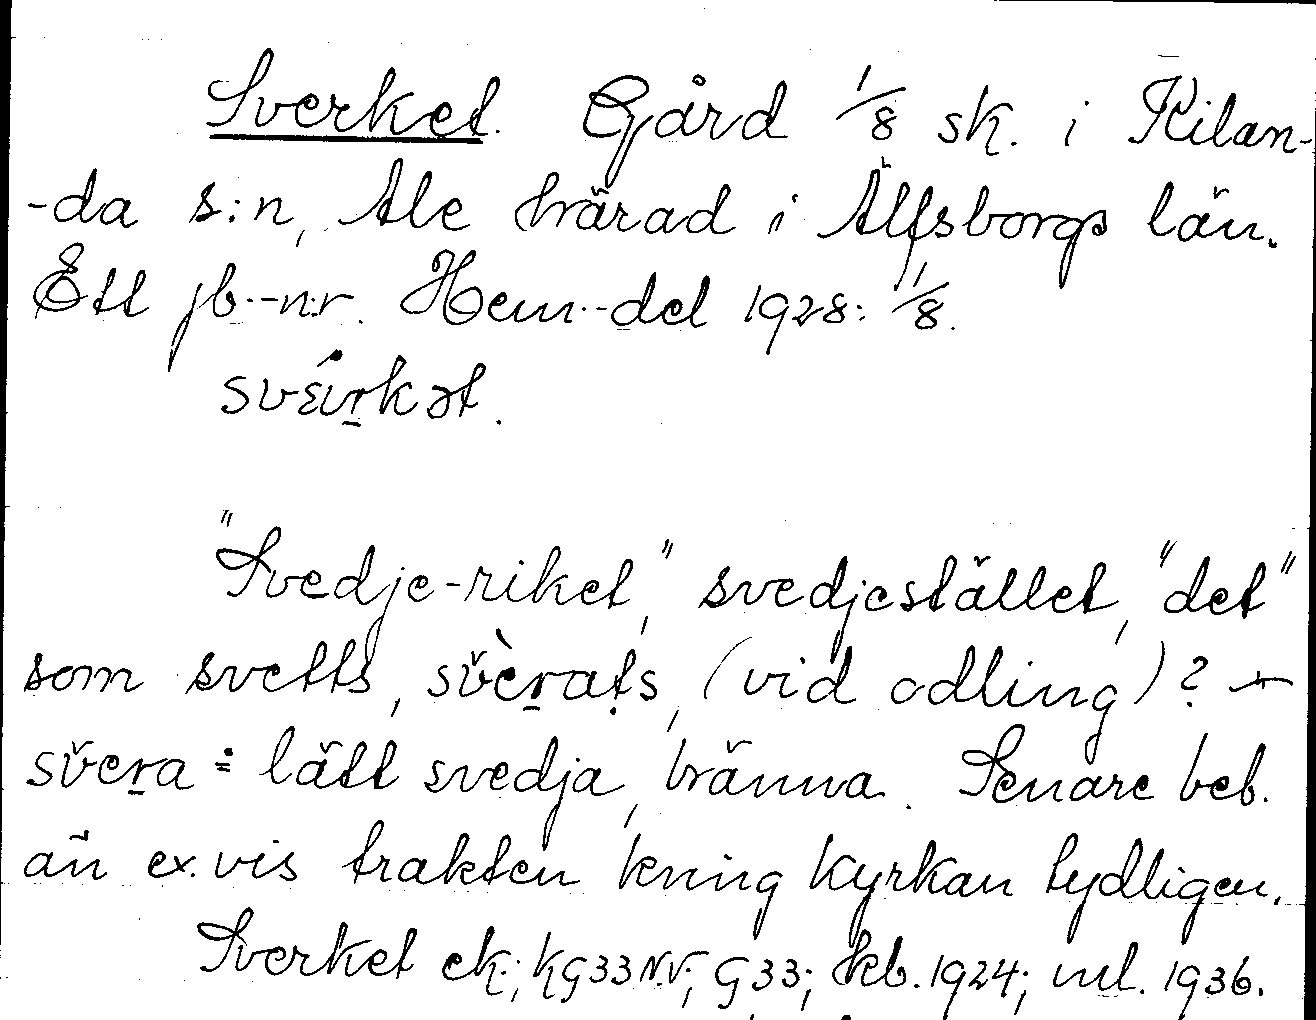 Sverket. Gård 1/8 sk. i Kilan-
-da s:n, Ale härad i Älfsborgs län.
Ett jb.-n:r. Hem.-del 1928: 1/8.
svɛ́irkət.
"Svedje-riket," svedjestället, "det"
som svetts, svèrats, (vid odling)? —
svera = lätt svedja, bränna. Senare beb.
än ex.vis trakten kring kyrkan tydligen.
Sverket ek.; KG33N.V.; G33; kb. 1924; ml. 1936.